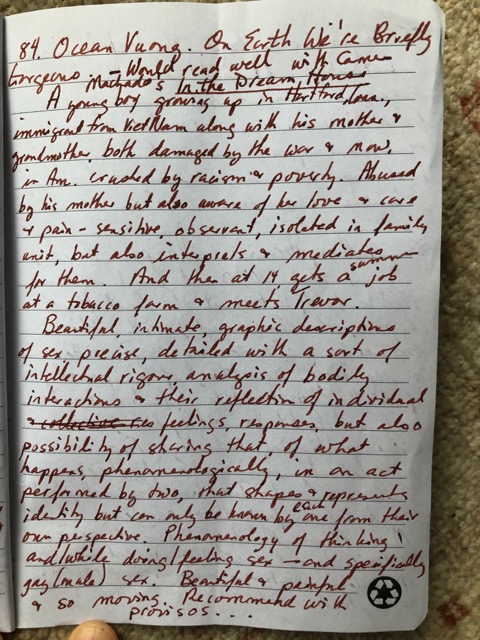 84. Ocean Vuong. On Earth We're Briefly
Gorgeous - Would read well with Carmen
Machado's In the Dream House
A young boy growing up in Hartford, Conn.,
immigrant from VietNam along with his mother &
grandmother, both damaged by the war & now,
in Am. crushed by racism & poverty. Abused
by his mother but also aware of her love & care
& pain - sensitive, observant, isolated in family
unit, but also interprets & mediates
for them. And then at 14 gets a summer job
at a tobacco farm & meets Trevor.
Beautiful, intimate, graphic descriptions
of sex - precise, detailed with a sort of
intellectual rigor, analysis of bodily
interactions & their reflection of individual
& collective res feelings, responses, but also
possibility of sharing that, of what
happens, phenomenologically, in an act
performed by two, that shapes & represents
identity but can only be known by each one from their
own perspective. Phenomenology of thinking
and/while doing/feeling sex - and specifically
gay (male) sex. Beautiful & painful
& so moving. Recommend with
provisos...